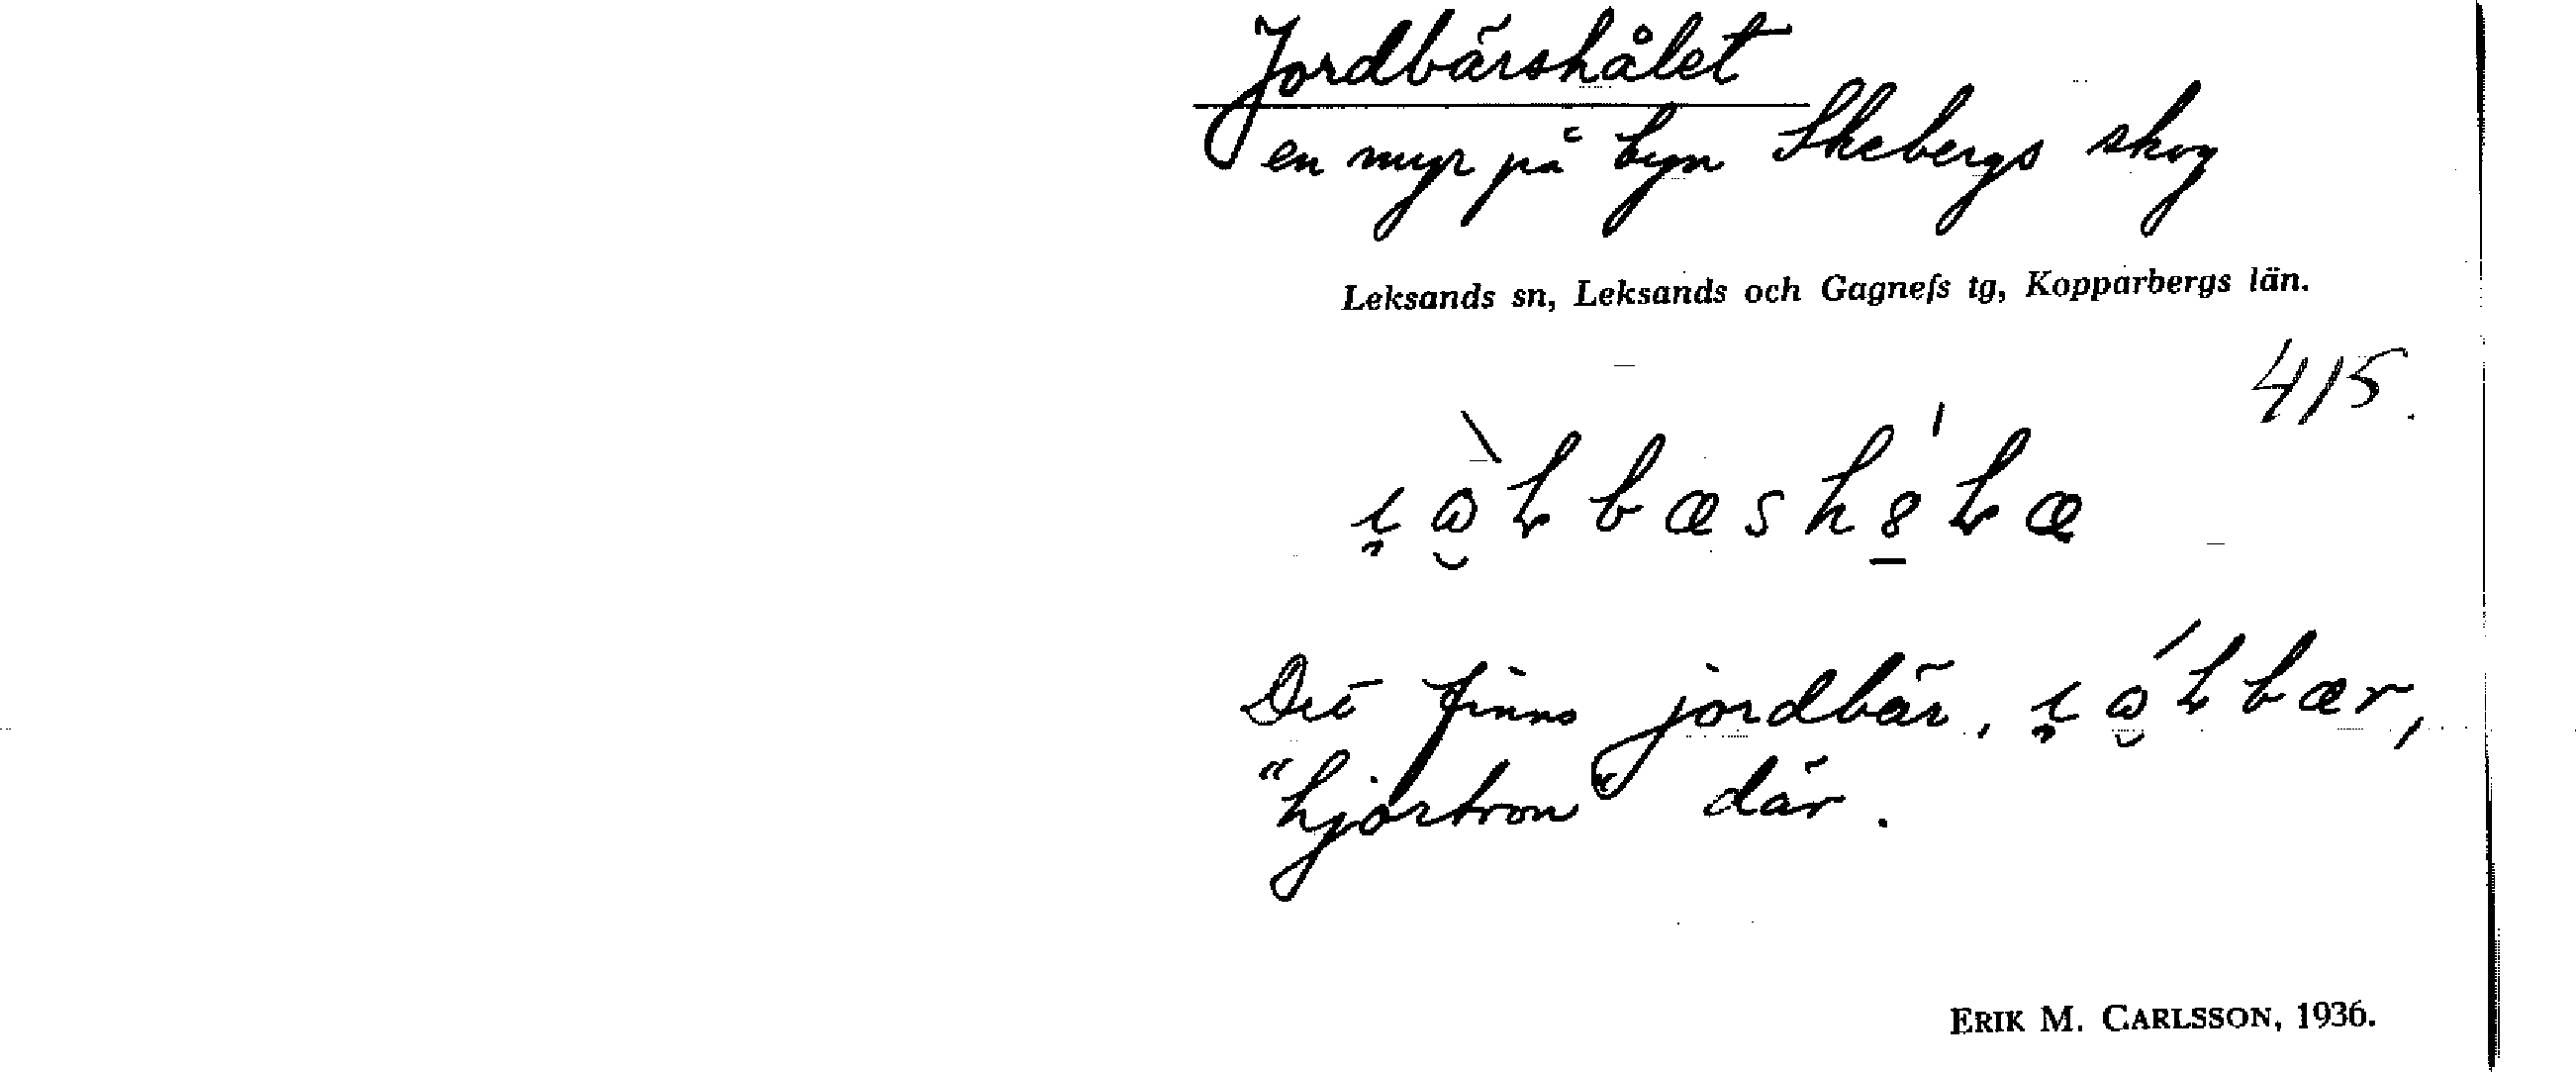 Jordbärshålet
en myr på byn Skebergs skog
Leksands sn, Leksands och Gagnefs tg, Kopparbergs län.
415.
Det finns jordbär,
"hjortron" där.
ERIK M. CARLSSON, 1936.